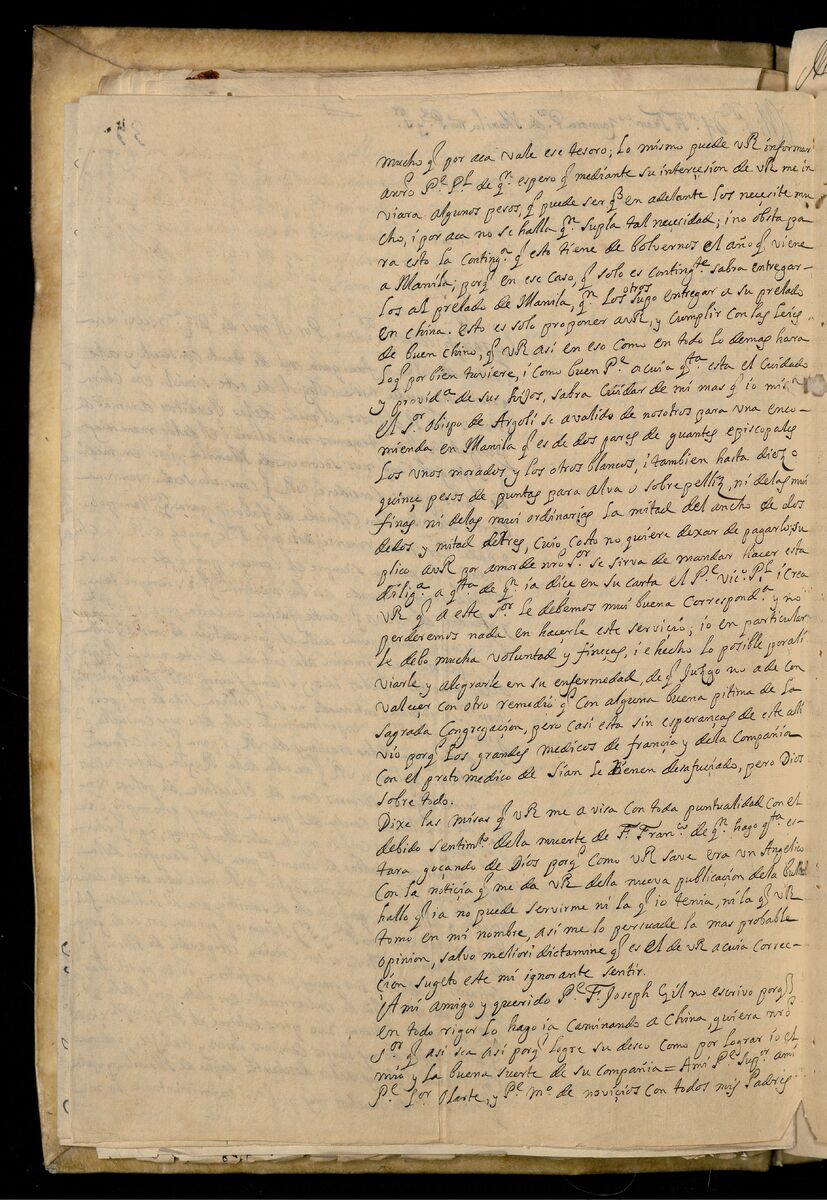 mucho q̃ por aca vale ese tesoro; Lo mismo puede vR informar
a nr̃o Pe. Pl. de qn. espero q̃ mediante su intercesion de vR me in
viara algunos pesos, q̃ puede ser q̃ en adelante los neçesite mu
cho, i por aca no se halla qn. supla tal necesidad; i no obsta pa
ra esto la continga. q̃ esto tiene de bolvernos el año q̃ viene
a Manila; porq̃ en ese caso, q̃ solo es contingte. sabra entregar-
los al prelado de Manila, qn. los otros supo entregar a su prelado
en china. esto es solo proponer a vR, y cumplir con las leies
de buen chino, q̃ vR asi en eso como en todo lo demas hara
loq̃ por bien tuviere, i como buen Pe. a cuia qta. esta el cuidado
y provida. de sus hijos, sabra cuidar de mi mas q̃ io
el Sor. obispo de Argoli se a valido de nosotros para una enco-
mienda en Manila q̃ es de dos pares de guantes episcopales
los unos morados y los otros blancos, i tambien hasta diez o
quinçe pesos de puntas para alva o sobrepelliz, ni delas mui
finas ni delas mui ordinarias la mitad del ancho de dos
dedos y mitad detres, cuio costo no quiere dexar de pagarlo, su
plico a vR por amor de nro Sor. se sirva de mandar hacer esta
dilига. a qta. de qn. ia diçe en su carta el Pe. vico. Pl. i crea
vR q̃ a este Sor. le debemos mui buena corresponda. y no
perderemos nada en haçerle este serviçio; io en particular
le debo mucha voluntad y fineças, i e hecho lo posible por ali
viarle y alegrarle en su enfermedad, de q̃ juzgo no a de con
valeçer con otro remedio q̃ con alguna buena pitima de la
sagrada Congregaçion, pero casi esta sin esperanças de este ali
vio porq̃ los grandes medicos de françia y dela compañia
con el proto medico de Sian le tienen desafuçiado, pero Dios
sobre todo.
Dixe las misas q̃ vR me avisa con toda puntualidad con el
debido sentimto. dela muerte de Fr. Franco. de qn. hago qta. es-
tara goçando de Dios porq̃ como vR save era un Angelico
con la notiçia q̃ me da vR dela nueva publicaçion dela bulla
hallo q̃ ia no puede servirme ni la q̃ io tenia, ni la q̃ vR
tomo en mi nombre, asi me lo persuade la mas probable
opinion, salvo meliori dictamine q̃ es el de vR a cuia correc-
çion sugeto este mi ignorante sentir.
A mi amigo y querido Pe. Fr. Joseph Gil no escrivo porq̃
en todo rigor lo hago ia caminando a China, quiera nr̃o
Sor. q̃ asi sea asi porq̃ logre su deseo como por lograr io el
mio y la buena suerte de su compañia = A mi Pe. Supor. a mi
Pe. Olarte, y Pe. Mo. de noviçios con todos mis Padres